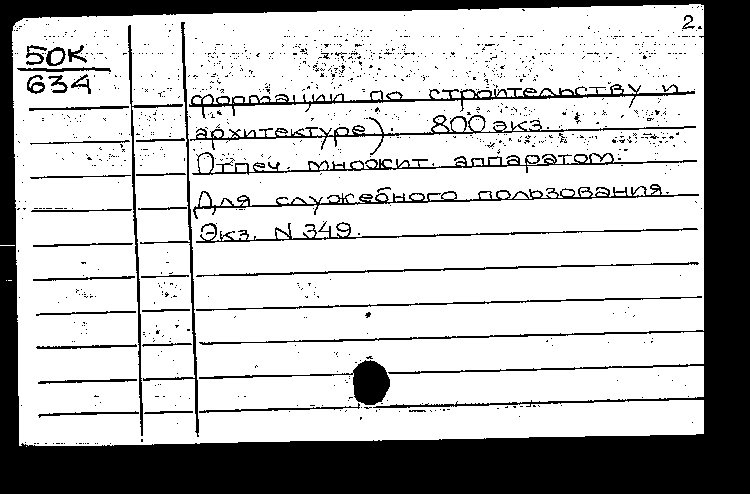 2.
50К
634
формации по строительству и
архитектуре). 800 экз.
Отпеч. множит. аппаратом.
Для служебного пользования.
Экз. N 349.